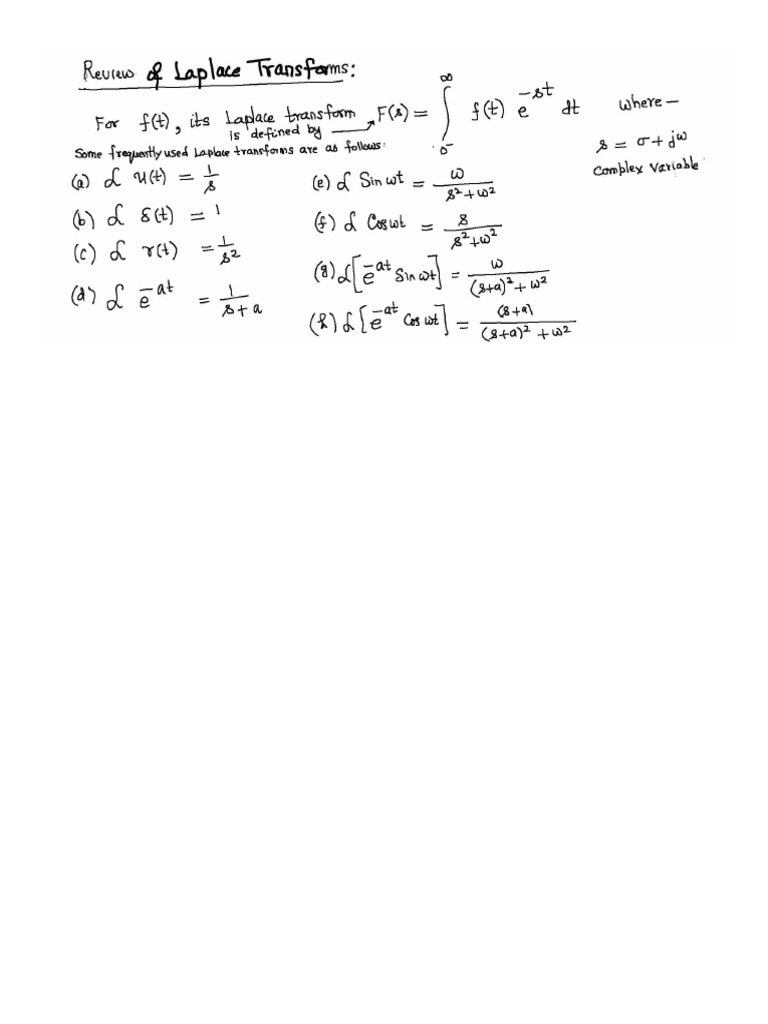 Review of Laplace Transforms:
For f(t), its Laplace transform is defined by → F(s) = ∫₀₋^∞ f(t) e^{-st} dt where —
s = σ + jω
Complex Variable
Some frequently used Laplace transforms are as follows:
(a) ℒ u(t) = 1/s
(b) ℒ δ(t) = 1
(c) ℒ r(t) = 1/s²
(d) ℒ e^{-at} = 1/(s+a)
(e) ℒ Sin ωt = ω/(s²+ω²)
(f) ℒ Cos ωt = s/(s²+ω²)
(g) ℒ[e^{-at} Sin ωt] = ω/((s+a)²+ω²)
(h) ℒ[e^{-at} Cos ωt] = (s+a)/((s+a)²+ω²)